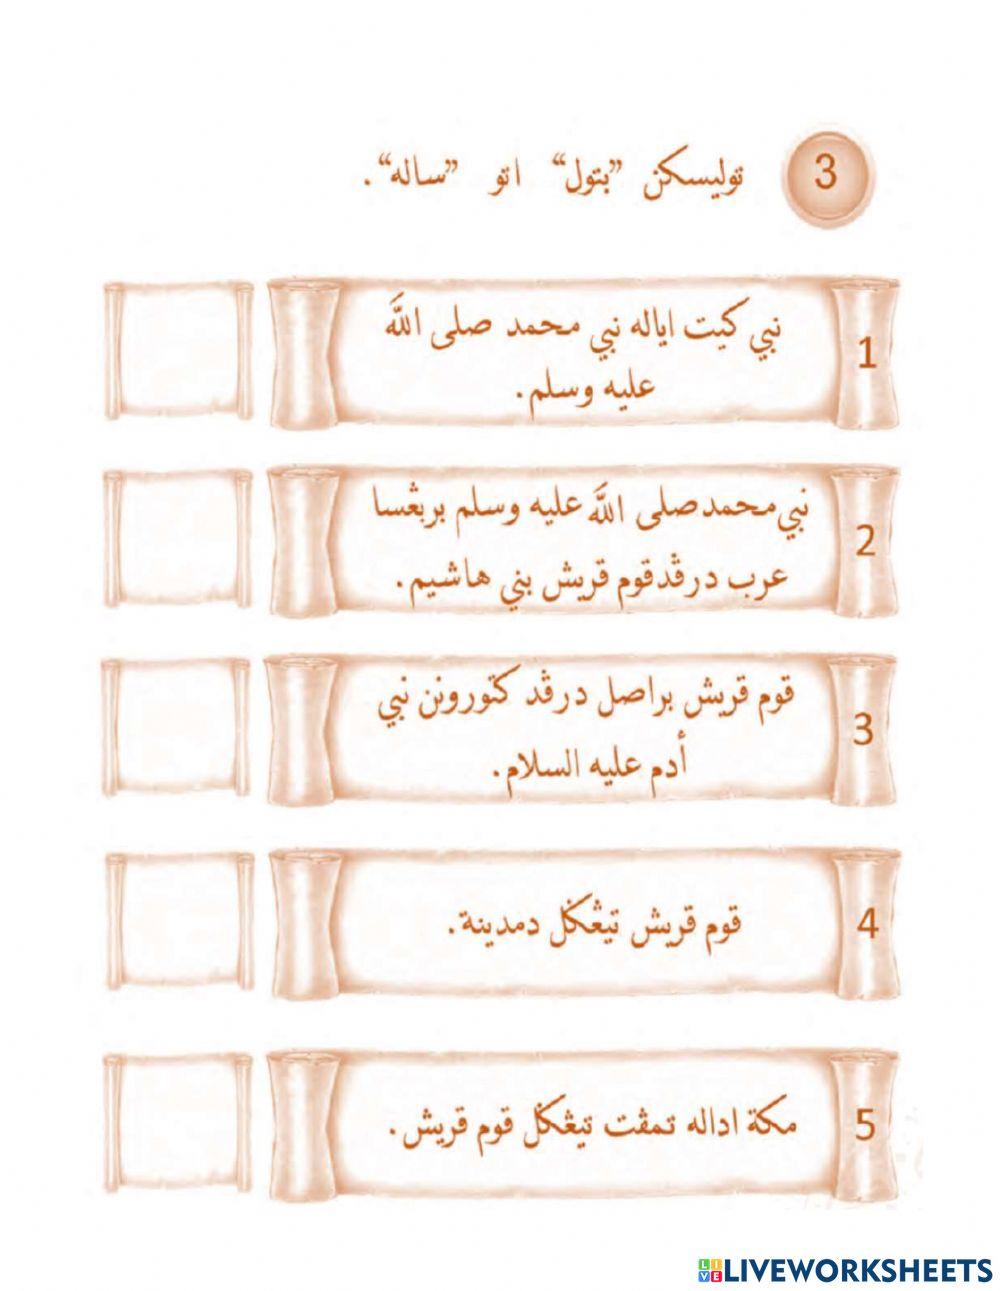 3
توليسكن ”بتول“ اتو ”ساله“.
1
نبي كيت اياله نبي محمد صلى اللّٰه
عليه وسلم.
2
نبي محمد صلى اللّٰه عليه وسلم بربڠسا
عرب درڤد قوم قريش بني هاشيم.
3
قوم قريش براصل درڤد كتورونن نبي
أدم عليه السلام.
4
قوم قريش تيڠݢل دمدينة.
5
مكة اداله تمڤت تيڠݢل قوم قريش.
LIVEWORKSHEETS